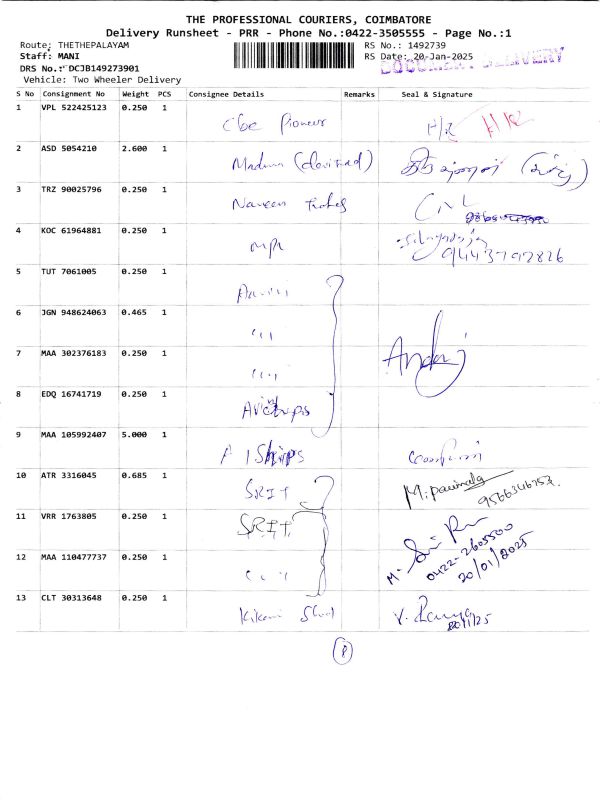 THE PROFESSIONAL COURIERS, COIMBATORE
Delivery Runsheet - PRR - Phone No.:0422-3505555 - Page No.:1
Route: THETHEPALAYAM
RS No.: 1492739
Staff: MANI
RS Date: 20-Jan-2025
DOCUMENT DELIVERY
DRS No.: DCJB149273901
Vehicle: Two Wheeler Delivery
S No Consignment No Weight PCS Consignee Details Remarks Seal & Signature
1 VPL 522425123 0.250 1 Cbe Pioneer H/R H/R
2 ASD 5054210 2.600 1
3 TRZ 90025796 0.250 1 Naveen
4 KOC 61964881 0.250 1
9443797826
5 TUT 7061005 0.250 1
6 JGN 948624063 0.465 1 " "
7 MAA 302376183 0.250 1 " "
8 EDQ 16741719 0.250 1
9 MAA 105992407 5.000 1
10 ATR 3316045 0.685 1 SRIT M.
9566346753.
11 VRR 1763805 0.250 1 SRIT
12 MAA 110477737 0.250 1 " " M.
0422-2605500
20/01/2025
13 CLT 30313648 0.250 1 Kikani V. Ramya
20/1/25
8